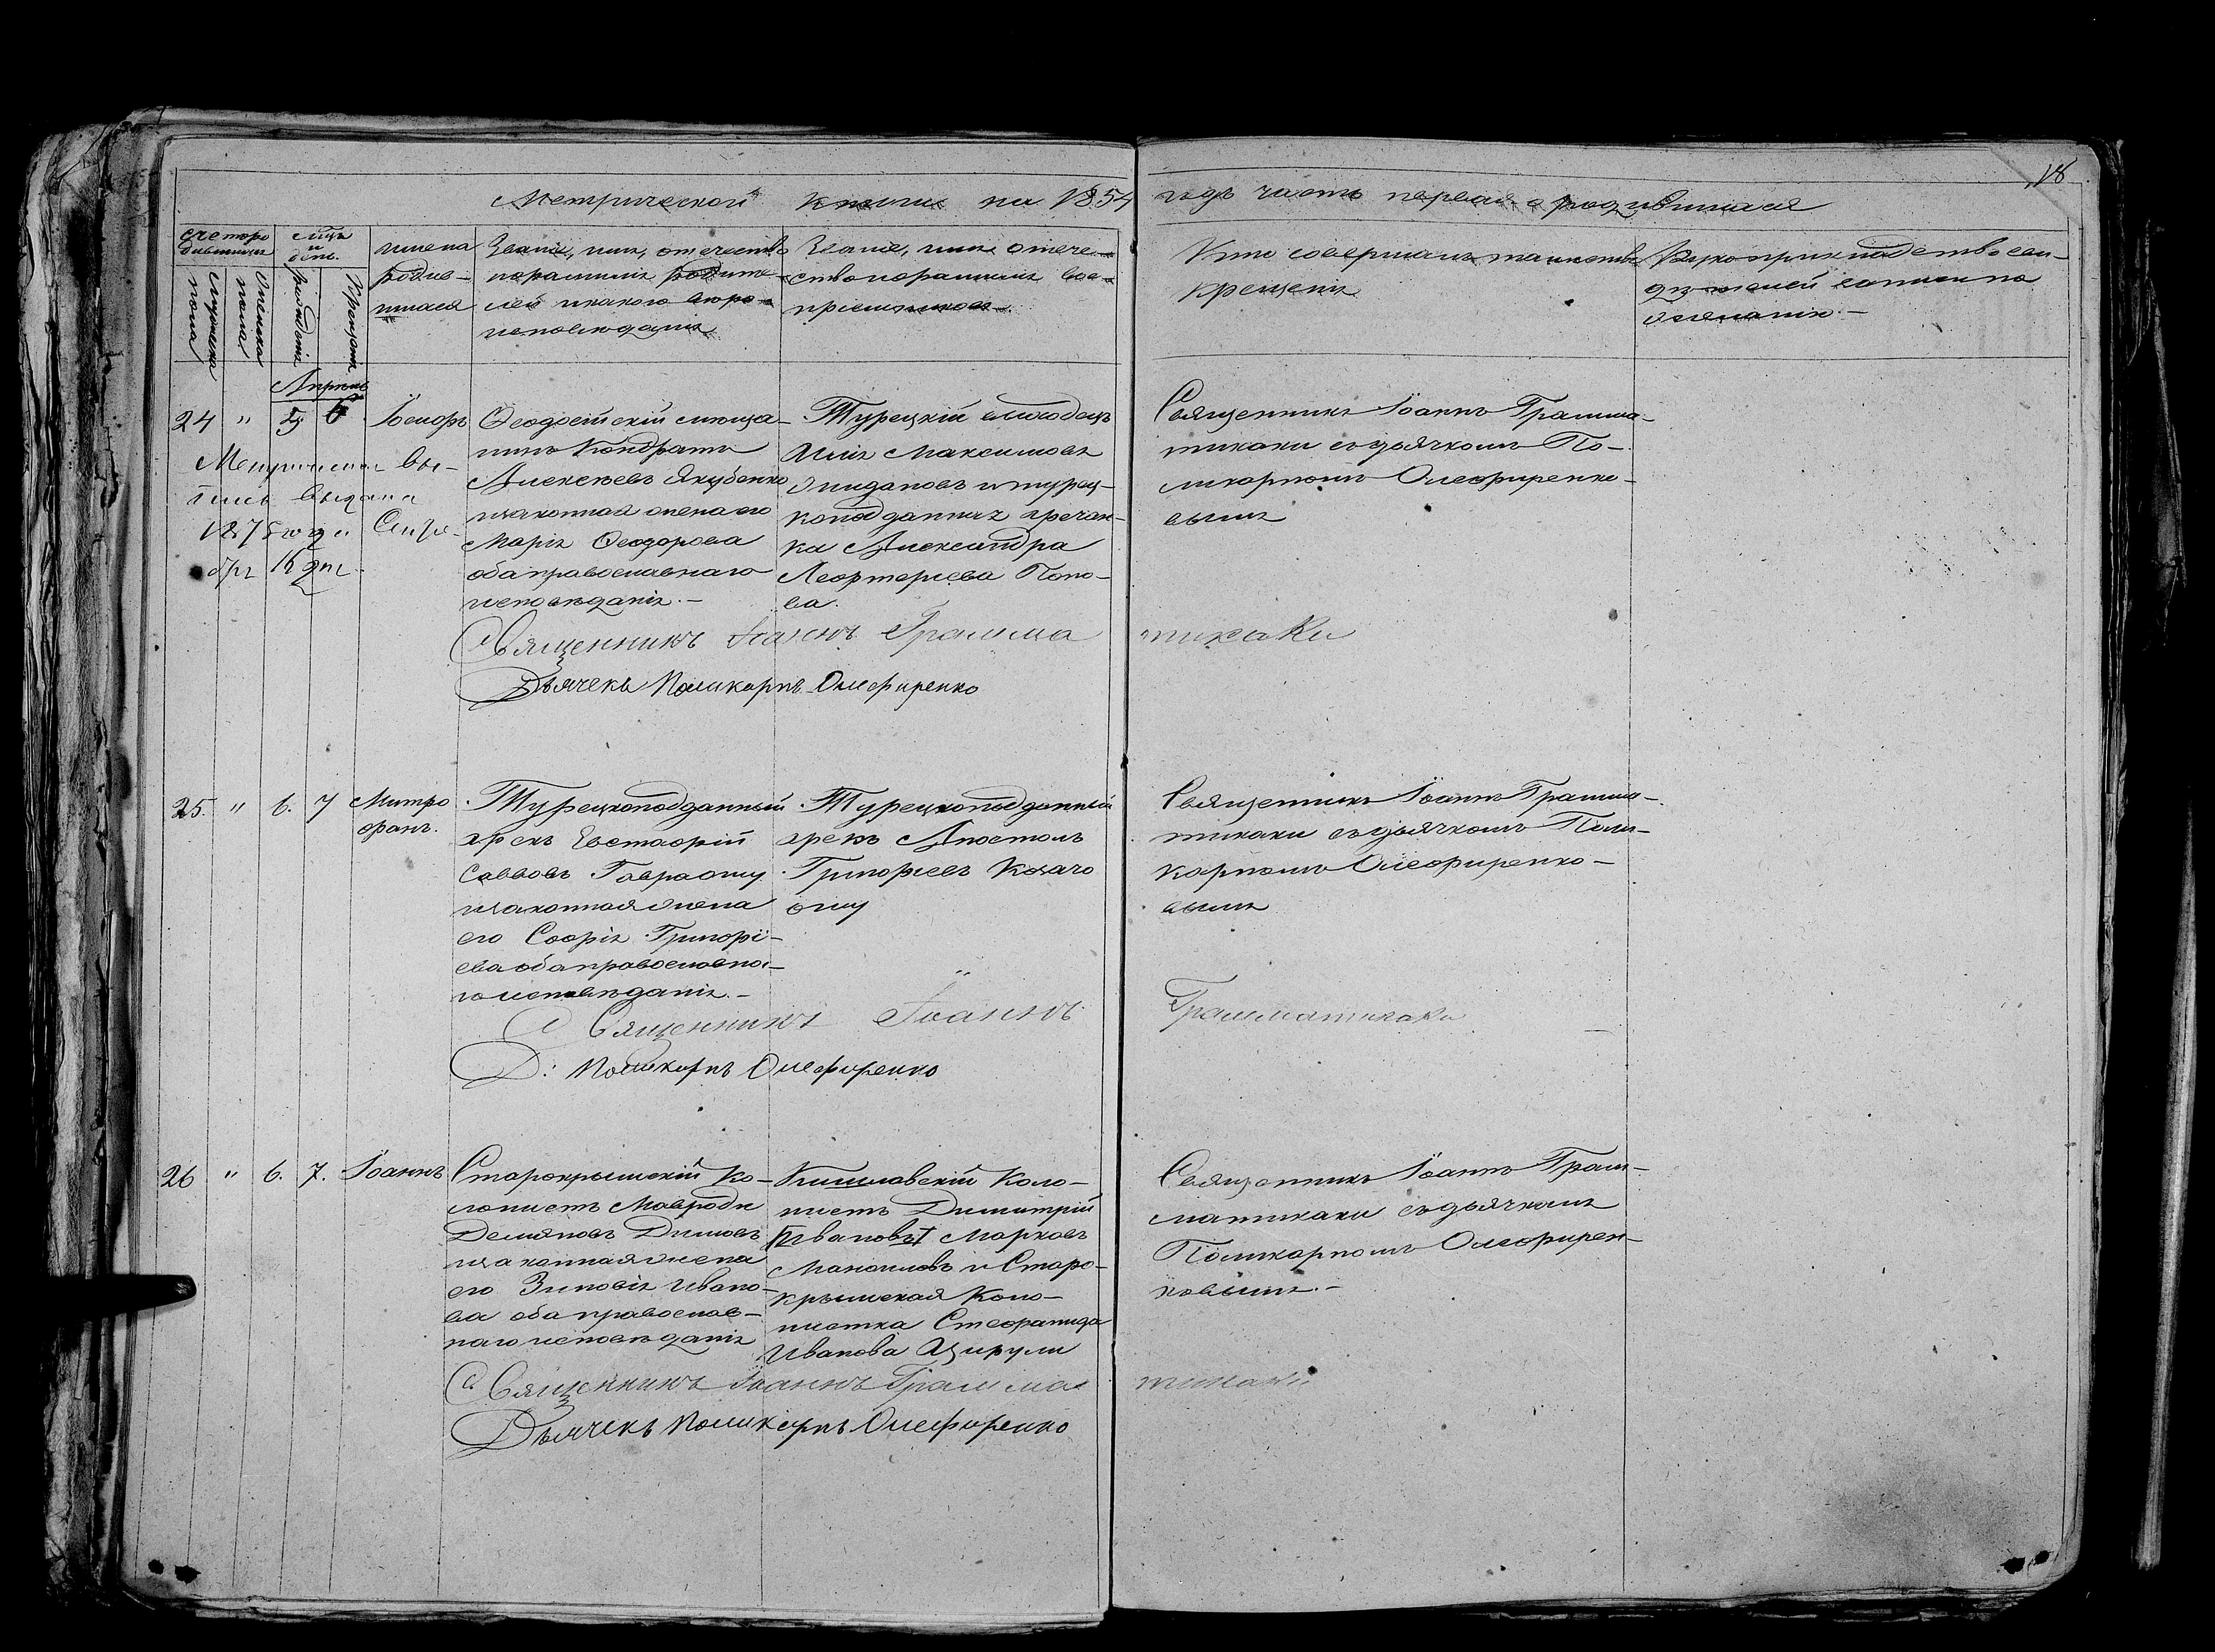 18
Метрической книги на 1854 годъ часть первая о родившихся
счетъ родившихся
мужеска пола
женска пола
мѣсяцъ и день.
рожденія
крещенія
имена родив-
шихся
Званіе, имя, отечество
и фамилія родите-
лей и какого вѣро-
исповѣданія
Званіе, имя отече-
ство и фамилія вос-
пріемниковъ.
Кто совершалъ таинство
крещенія
Рукоприкладство сви-
дѣтелей записи по
желанію.—
Апрель
24 " 5 6
Ѳеодосійскій мѣща-
нинъ Кондратъ
Алексѣевъ Якубенко
и законная жена его
Марія Ѳеодорова
оба православнаго
исповѣданія.—
Турецкій
Илія Максимовъ
и турец-
коподданная гречан-
ка Александра
Попо-
ва.
Священникъ Іоаннъ Грамма-
тикаки съ дьячкомъ По-
ликарпомъ Олефиренко-
вымъ
Метрическая вы-
пись выдана
1875 года Сентя-
бря 16 дня
Священникъ Іоаннъ Грамматикаки
Дьячекъ Поликарпъ Олефиренко
25. " 6. 7 Митро
фанъ.
Турецкоподданный
грекъ Евстафій
Саввовъ
и законная жена
его Софія Григорі-
ева оба православна-
го исповѣданія.—
Турецкоподданный
грекъ Апостолъ
Григорьевъ
Священникъ Іоаннъ Грамма-
тикаки съ дьячкомъ Поли-
карпомъ Олефиренко-
вымъ
Священникъ Іоаннъ Грамматикаки
Д: Поликарпъ Олефиренко
26 " 6. 7. Іоаннъ
Старокрымскій Ко-
лонистъ Мавроди
Демяновъ Димовъ
и законная жена
его Зиновія Ивано-
ва оба православ-
наго исповѣданія
Кишлавскій Коло-
нистъ Димитрій
Ивановъ Марковъ
Маноиловъ и Старо-
крымская Коло-
нистка Стефанида
Иванова
Священникъ Іоаннъ Грам-
матикаки съ дьячкомъ
Поликарпомъ Олефирен-
ковымъ.—
Священникъ Іоаннъ Грамматикаки
Дьячекъ Поликарпъ Олефиренко